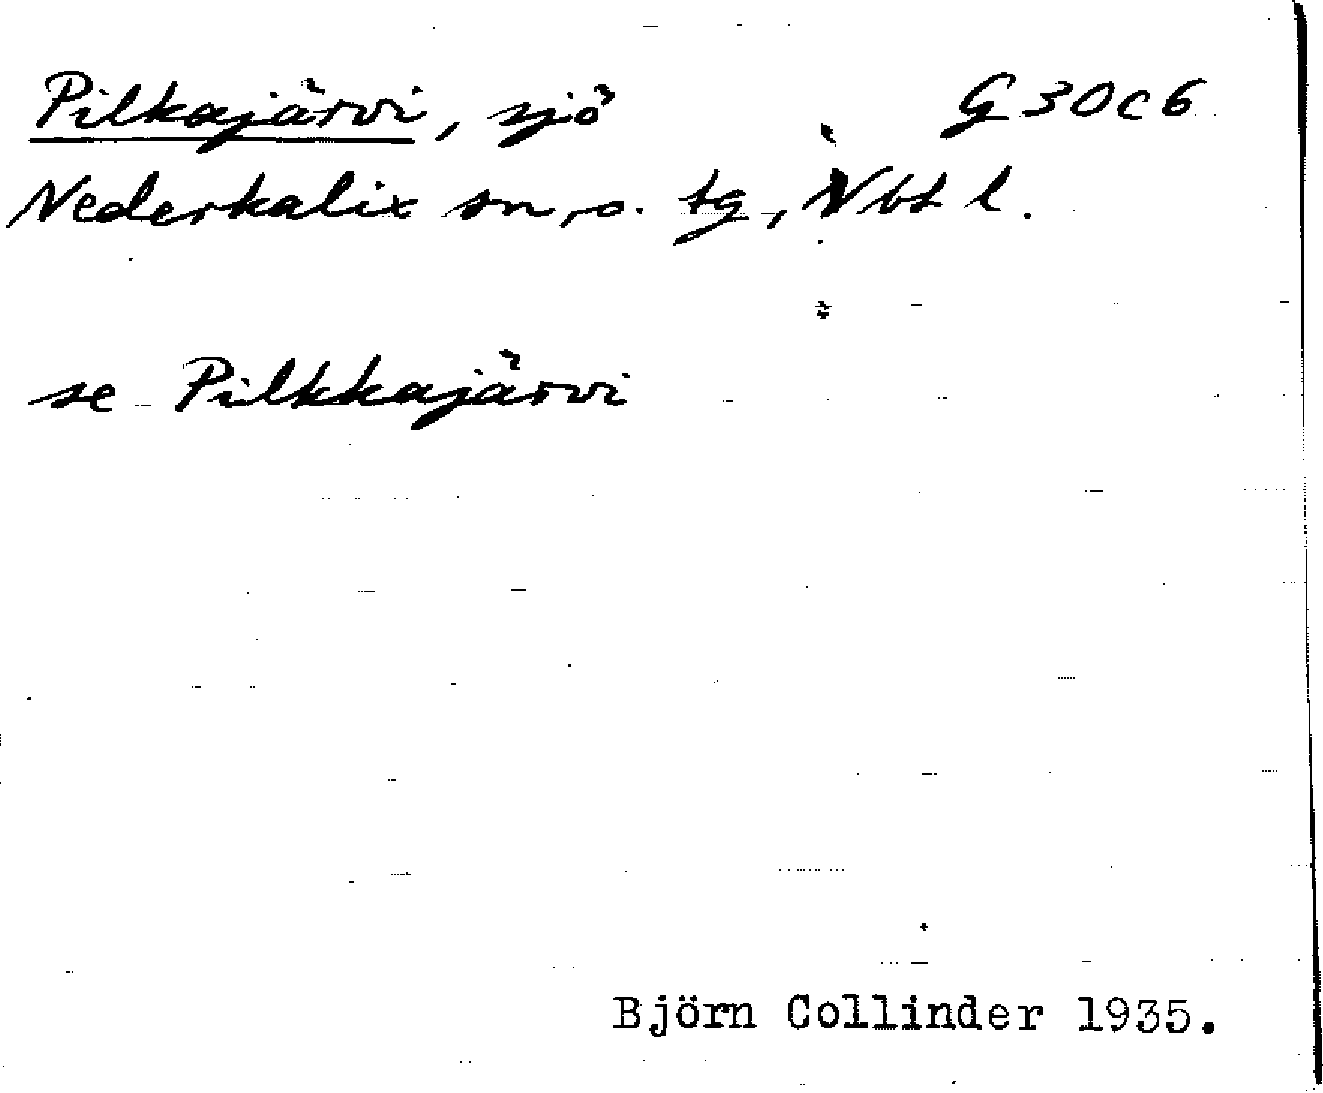 Pilkajärvi, sjö G 30 c 6
Nederkalix sn, o. tg, Nbt l.
se Pilkkajärvi
Björn Collinder 1935.